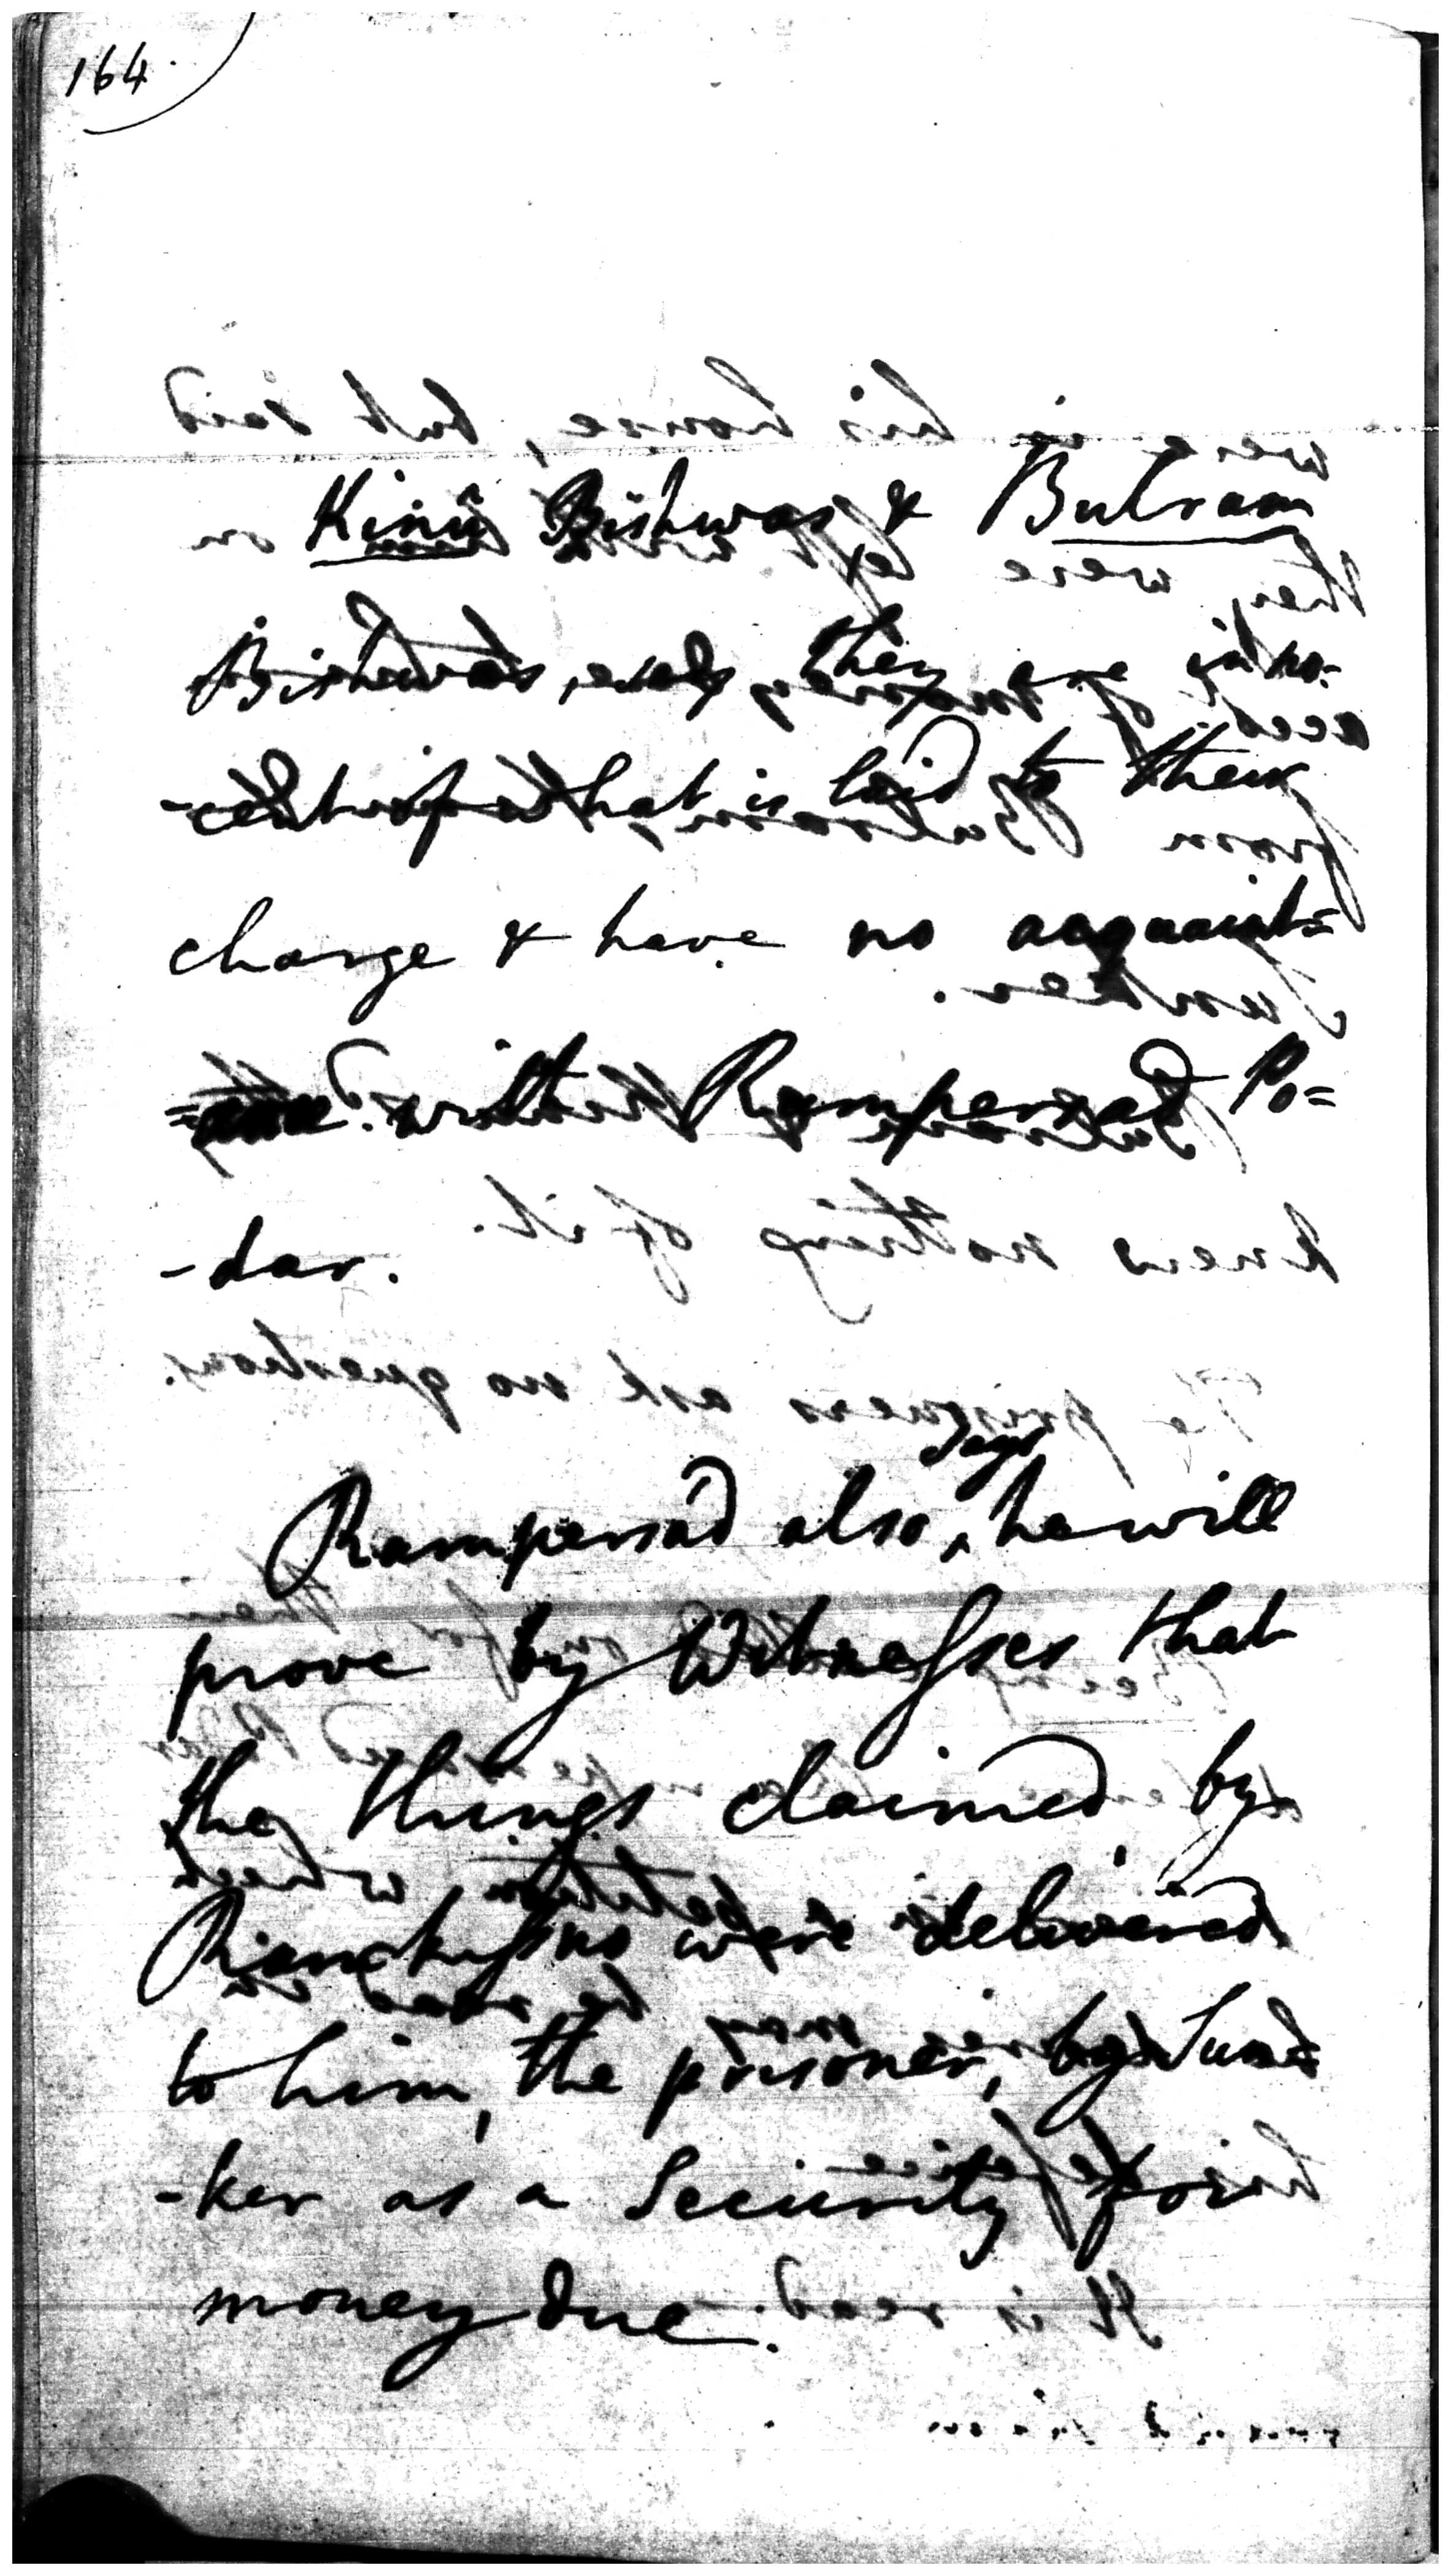 164.
Kinû Bishwas & Bulram
Bishwas, say, they are inno-
-cent of what is laid to their
charge & have no acquaint=
=ance with Rampersad Po=
-dar.
Rampersad also says he will
prove by Witnesses that
the things claimed by
were delivered
to him, the prisoner, by Sun-
-ker as a Security for
money due.